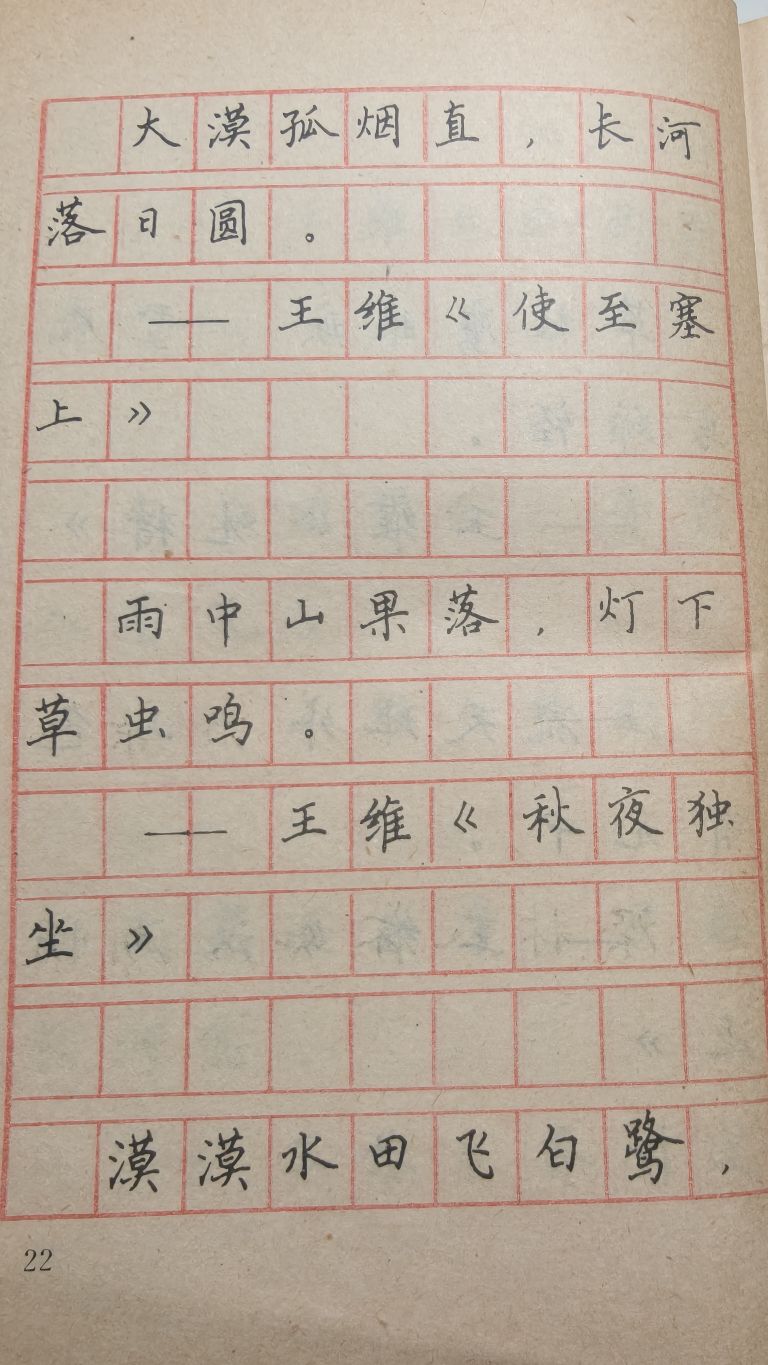 大漠孤烟直，长河
落日圆。
——王维《使至塞
上》
雨中山果落，灯下
草虫鸣。
——王维《秋夜独
坐》
漠漠水田飞白鹭，
22